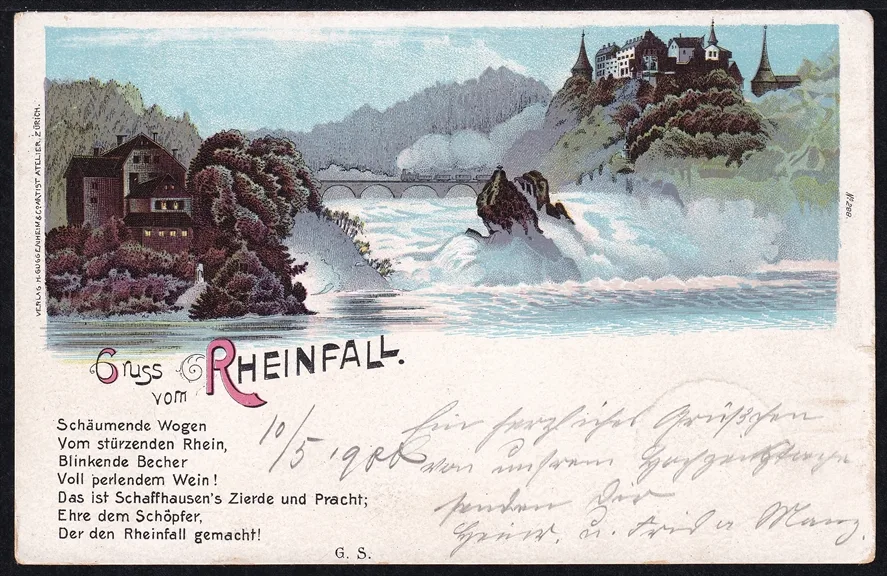 VERLAG H. GUGGENHEIM & Co ARTIST. ATELIER, ZÜRICH.
No. 288.
Gruss
vom RHEINFALL.
Schäumende Wogen
Vom stürzenden Rhein,
Blinkende Becher
Voll perlendem Wein!
Das ist Schaffhausen's Zierde und Pracht;
Ehre dem Schöpfer,
Der den Rheinfall gemacht!
G. S.
10/5
Ein herzliches Grüßchen
von unsrem Hochzeitstage
senden Dir
Heinr. u. Frida Manz.